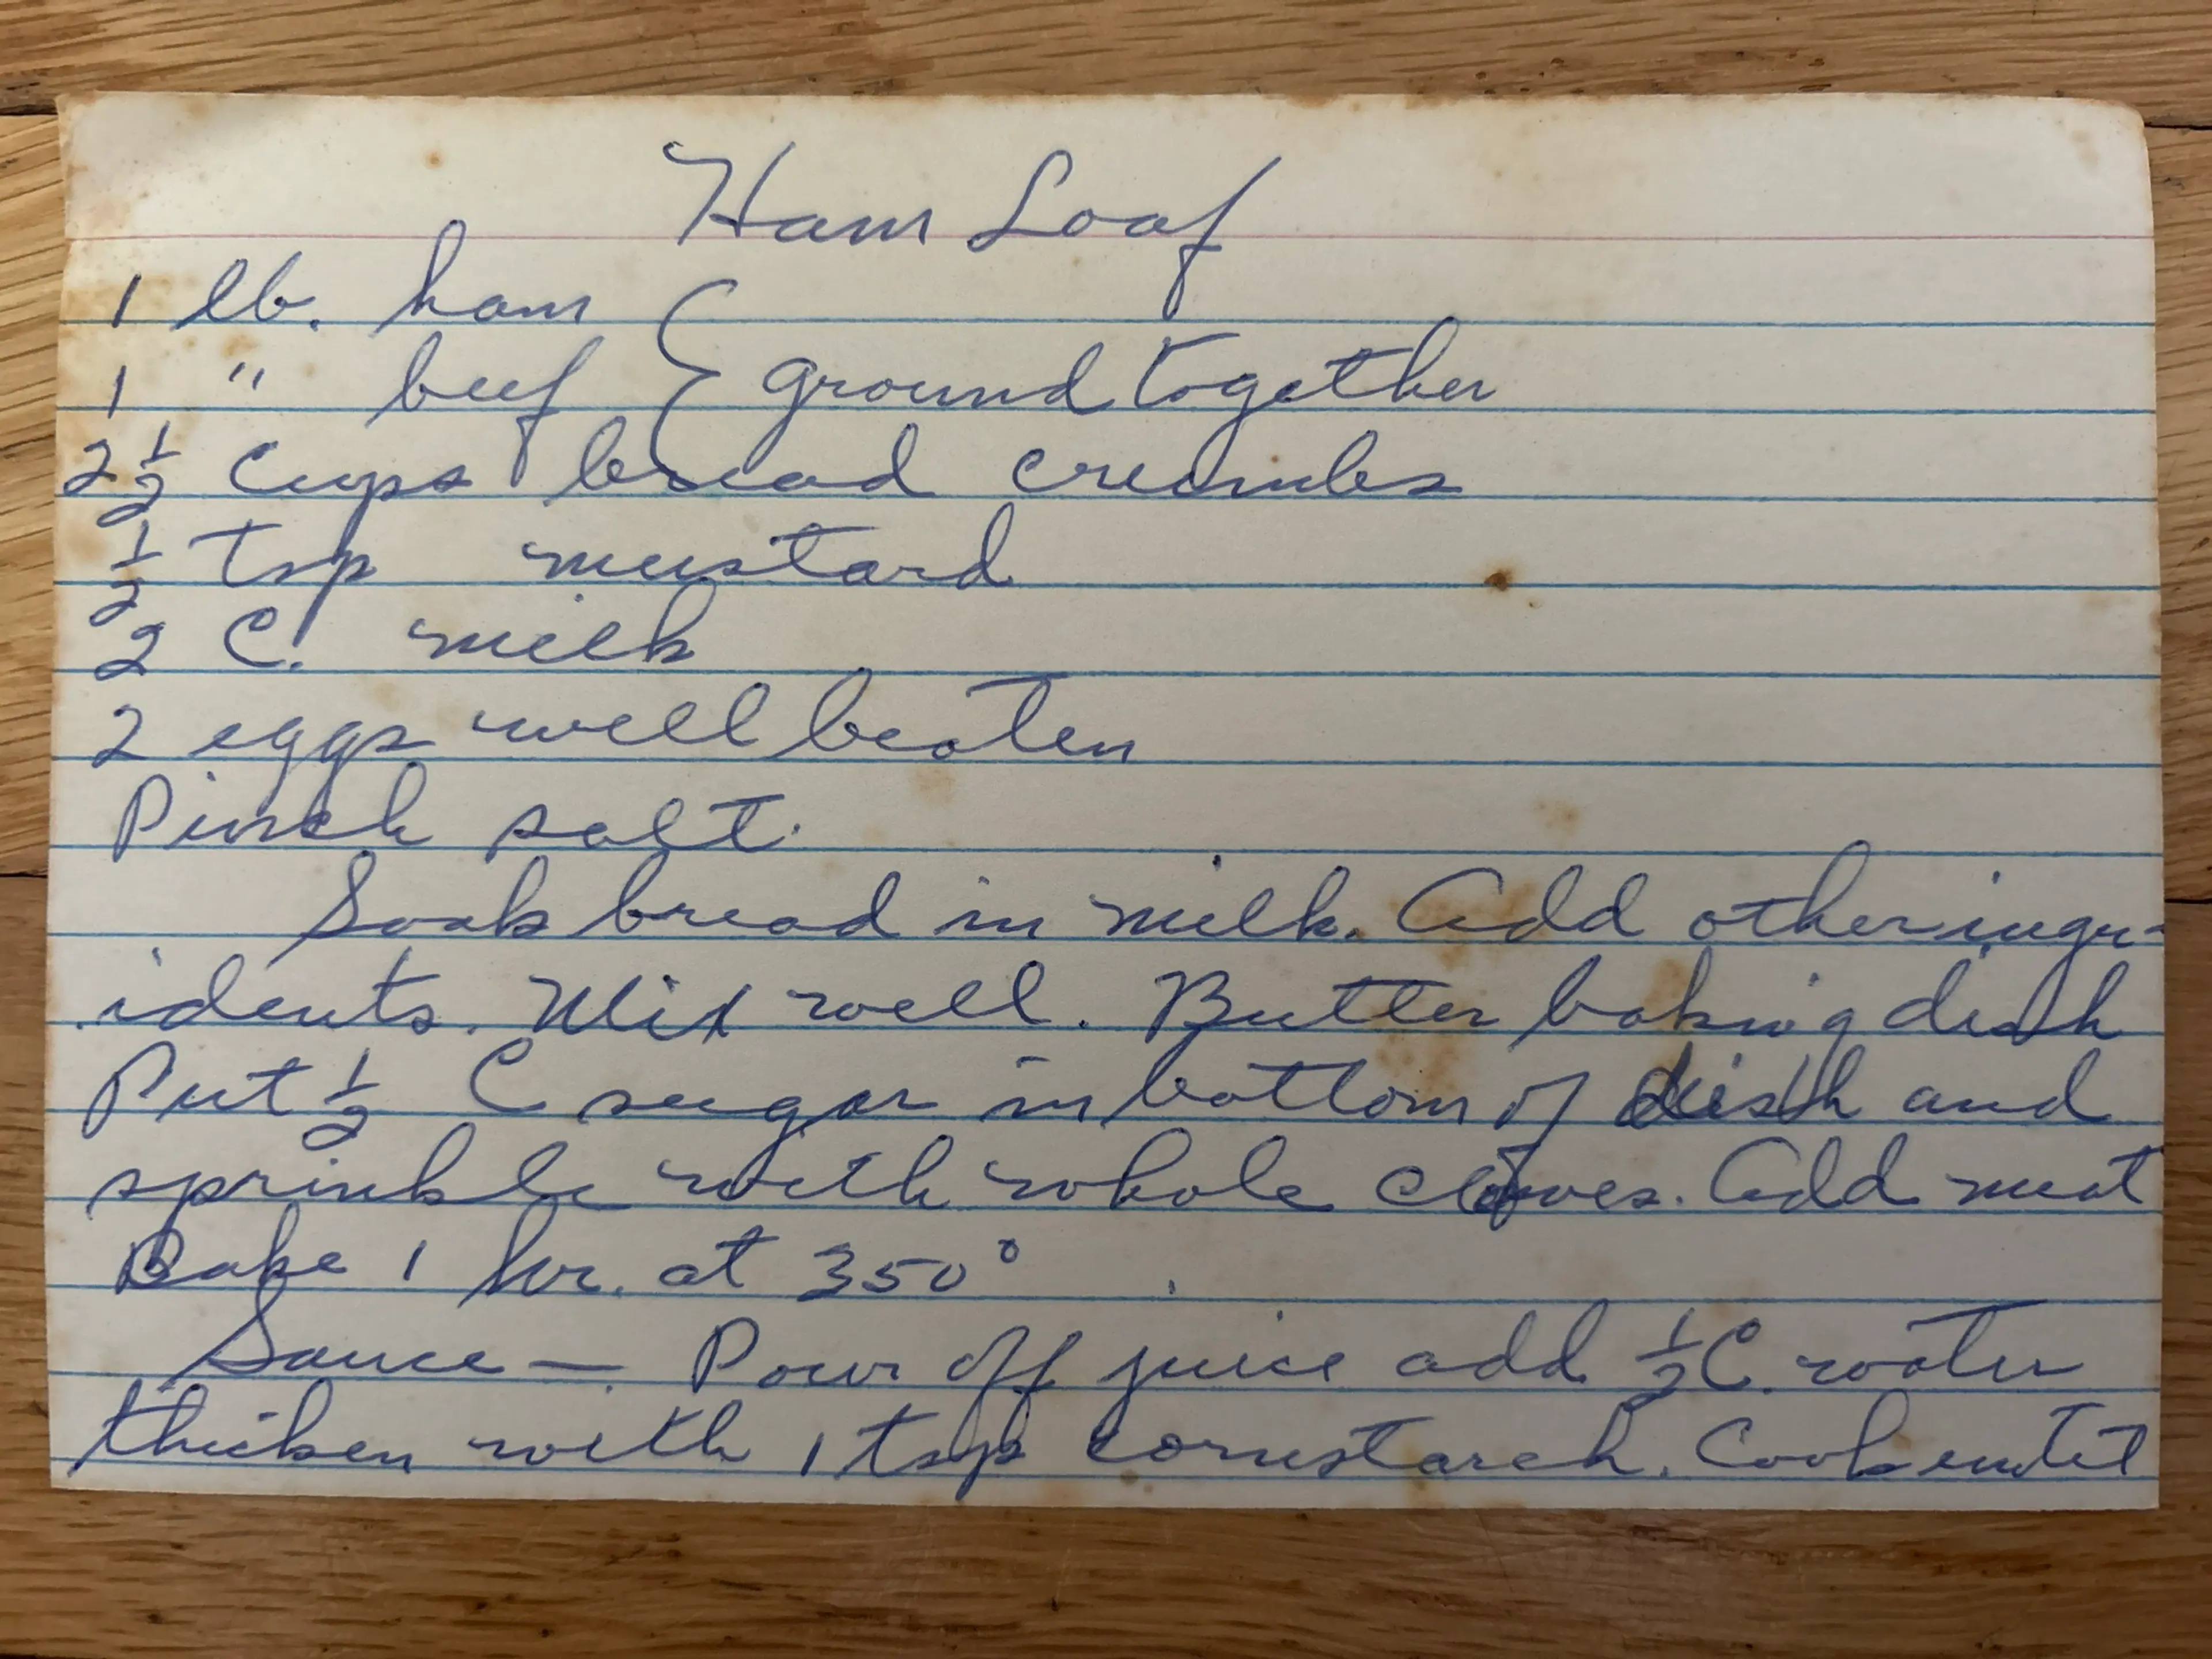 Ham Loaf
1 lb. ham {
1 " beef { ground together
2 1/2 Cups bread crumbs
1/2 tsp mustard
2 C. milk
2 eggs well beaten
Pinch salt.
Soak bread in milk. Add other ingr-
idents. Mix well. Butter baking dish
Put 1/2 C sugar in bottom of dish and
sprinkle with whole cloves. Add meat
Bake 1 hr. at 350°
Sauce — Pour off juice add 1/2 C. water
thicken with 1 tsp cornstarch. Cook until